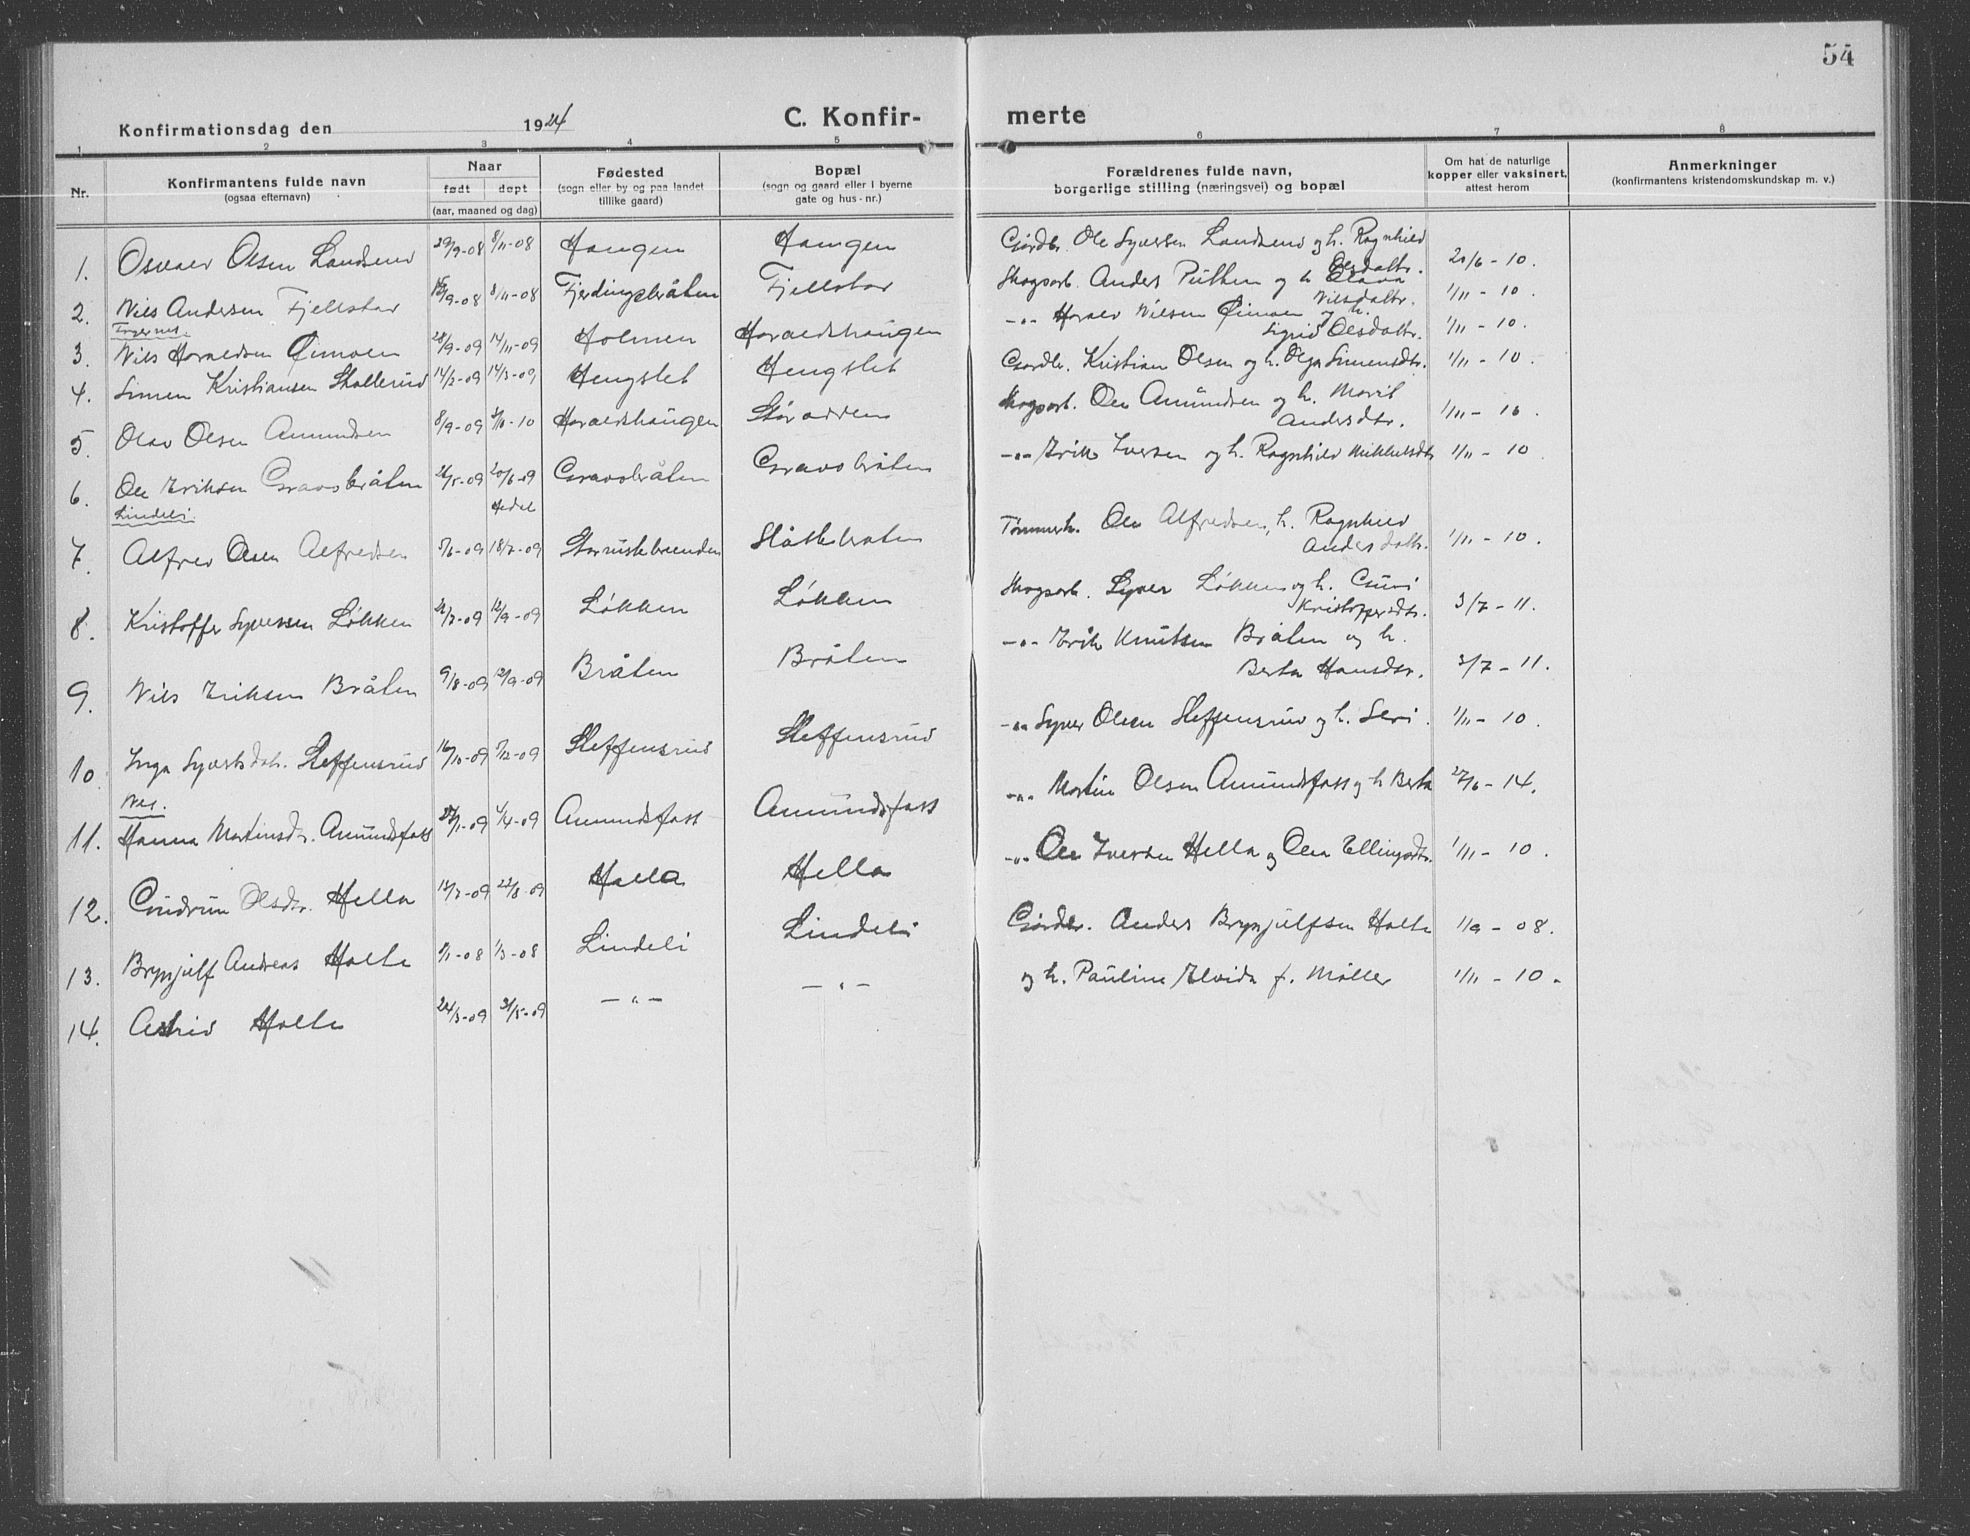 54
Konfirmationsdag den 1924
C. Konfir- merte
1 2 3 4 5 6 7 8
Nr.
Konfirmantens fulde navn
(ogsaa efternavn)
Naar
født døpt
(aar, maaned og dag)
Fødested
(sogn eller by og paa landet
tillike gaard)
Bopæl
(sogn og gaard eller i byerne
gate og hus-nr.)
Forældrenes fulde navn,
borgerlige stilling (næringsvei) og bopæl
Om hat de naturlige
kopper eller vaksinert,
attest herom
Anmerkninger
(konfirmantens kristendomskundskap m. v.)
1. Osvald Olsen Landsend 29/9-08 8/11-08 Haugen Haugen Gårdbr. Ole Syversen Landsend og h. Ragnhild Olsdatr. 20/6-10.
2. Nils Andersen Fjellstad 8/11-08 Fjerdingsbråten Fjellstad Skogsarb. Anders Putten og h. Nilsdatr. 1/11-10.
3. Nils Haraldsen Øimoen 28/9-09 14/11-09 Holmen Haraldshaugen -"- Harald Nilsen Øimoen og h. Sigrid Olsdatr. 1/11-10.
4. Simen Kristiansen Skollerud 14/2-09 14/3-09 Hengslet Hengslet Gardbr. Kristian Olsen og h. Olga Simensdtr. 1/11-10.
5. Olav Olsen Amundsen 8/9-09 Haraldshaugen Skogsarb. Ole Amundsen og h. Marit Andersdtr. 1/11-10.
6. Ole Eriksen Gravsbråten 26/5-09 20/6-09 Hedal Gravsbråten Gravsbråten -"- Erik Iversen og h. Ragnhild Mikkelsdtr 1/11-10.
Lindeli
7. Alfred Olsen Alfredsen 5/6-09 18/7-09 Storrustebrenden Slåttebråten Tømmerh. Ole Alfredsen, h. Ragnhild Andersdatr. 1/11-10.
8. Kristoffer Syversen Løkken 12/9-09 Løkken Løkken Skogsarb. Syver Løkken og h. Guri Kristoffersdtr. 3/7-11.
9. Nils Eriksen Bråten 9/8-09 12/9-09 Bråten Bråten -"- Erik Knutsen Bråten og h. Berta Hansdtr. 3/7-11.
10. Inga Syversdatr. Steffensrud 16/10-09 5/12-09 Steffensrud Steffensrud -"- Syver Olsen Steffensrud og h. Siri. 1/11-10.
Nes.
11. Hanna Martinsdr. Amundsfatt 4/4-09 Amundsfatt Amundsfatt -"- Martin Olsen Amundsfatt og h Berta 27/6-14.
12. Gudrun Olsdr. Hella 12/7-09 22/8-09 Hella Hella -"- Ole Iversen Hella og Olea Ellingsdtr. 1/11-10.
13. Brynjulf Andreas Holte 1/3-08 Lindeli Lindeli Gårdbr. Anders Brynjulfsen Holte 1/9-08.
14. Astrid Holte 24/3-09 31/5-09 -"- -"- og h. Pauline Elvida f. Møller 1/11-10.